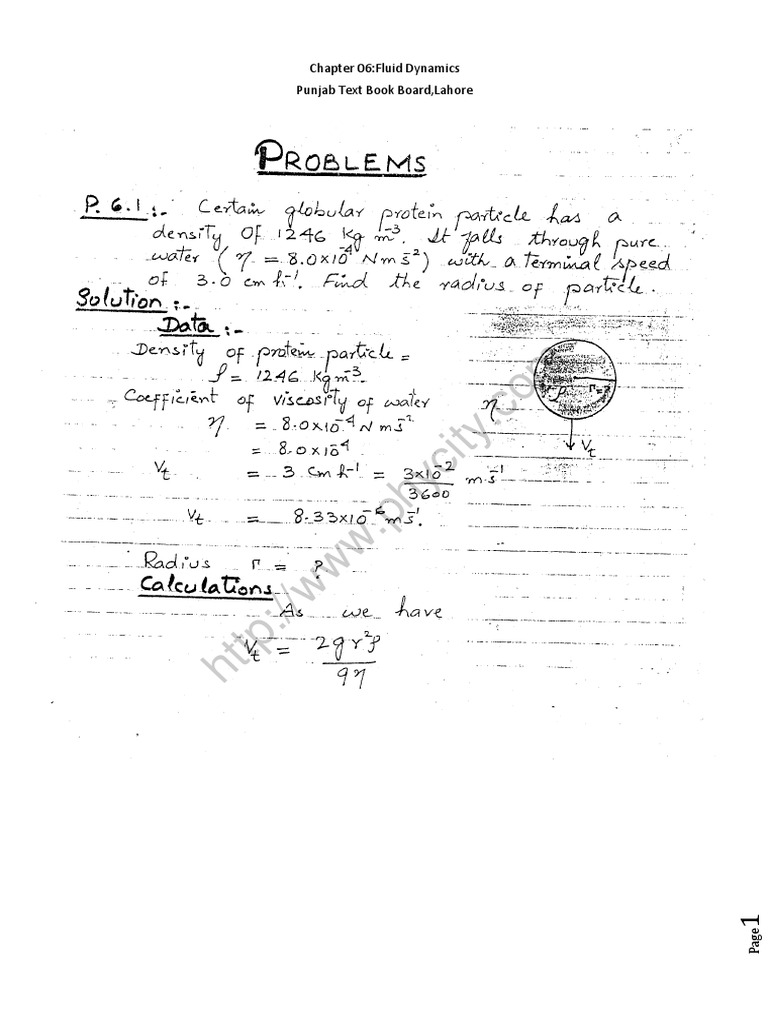 Chapter 06:Fluid Dynamics
Punjab Text Book Board,Lahore
PROBLEMS
P. 6.1:- Certain globular protein particle has a
density Of 1246 Kg m⁻³. It falls through pure
water ( η = 8.0×10⁻⁴ N m s⁻²) with a terminal speed
of 3.0 cm h⁻¹. Find the radius of particle.
Solution:-
Data:-
Density of protein particle =
ρ = 1246 Kgm⁻³.
Coefficient of viscosity of water
η = 8.0×10⁻⁴ N m s⁻²
= 8.0×10⁻⁴
Vt = 3 cm h⁻¹ = 3×10⁻²/3600 m s⁻¹
Vt = 8.33×10⁻⁶ m s⁻¹.
Radius r = ?
Calculations
As we have
Vt = 2gr²ρ/9η
η
ρ r=?
Vt
http://www.phycity.com
Page 1